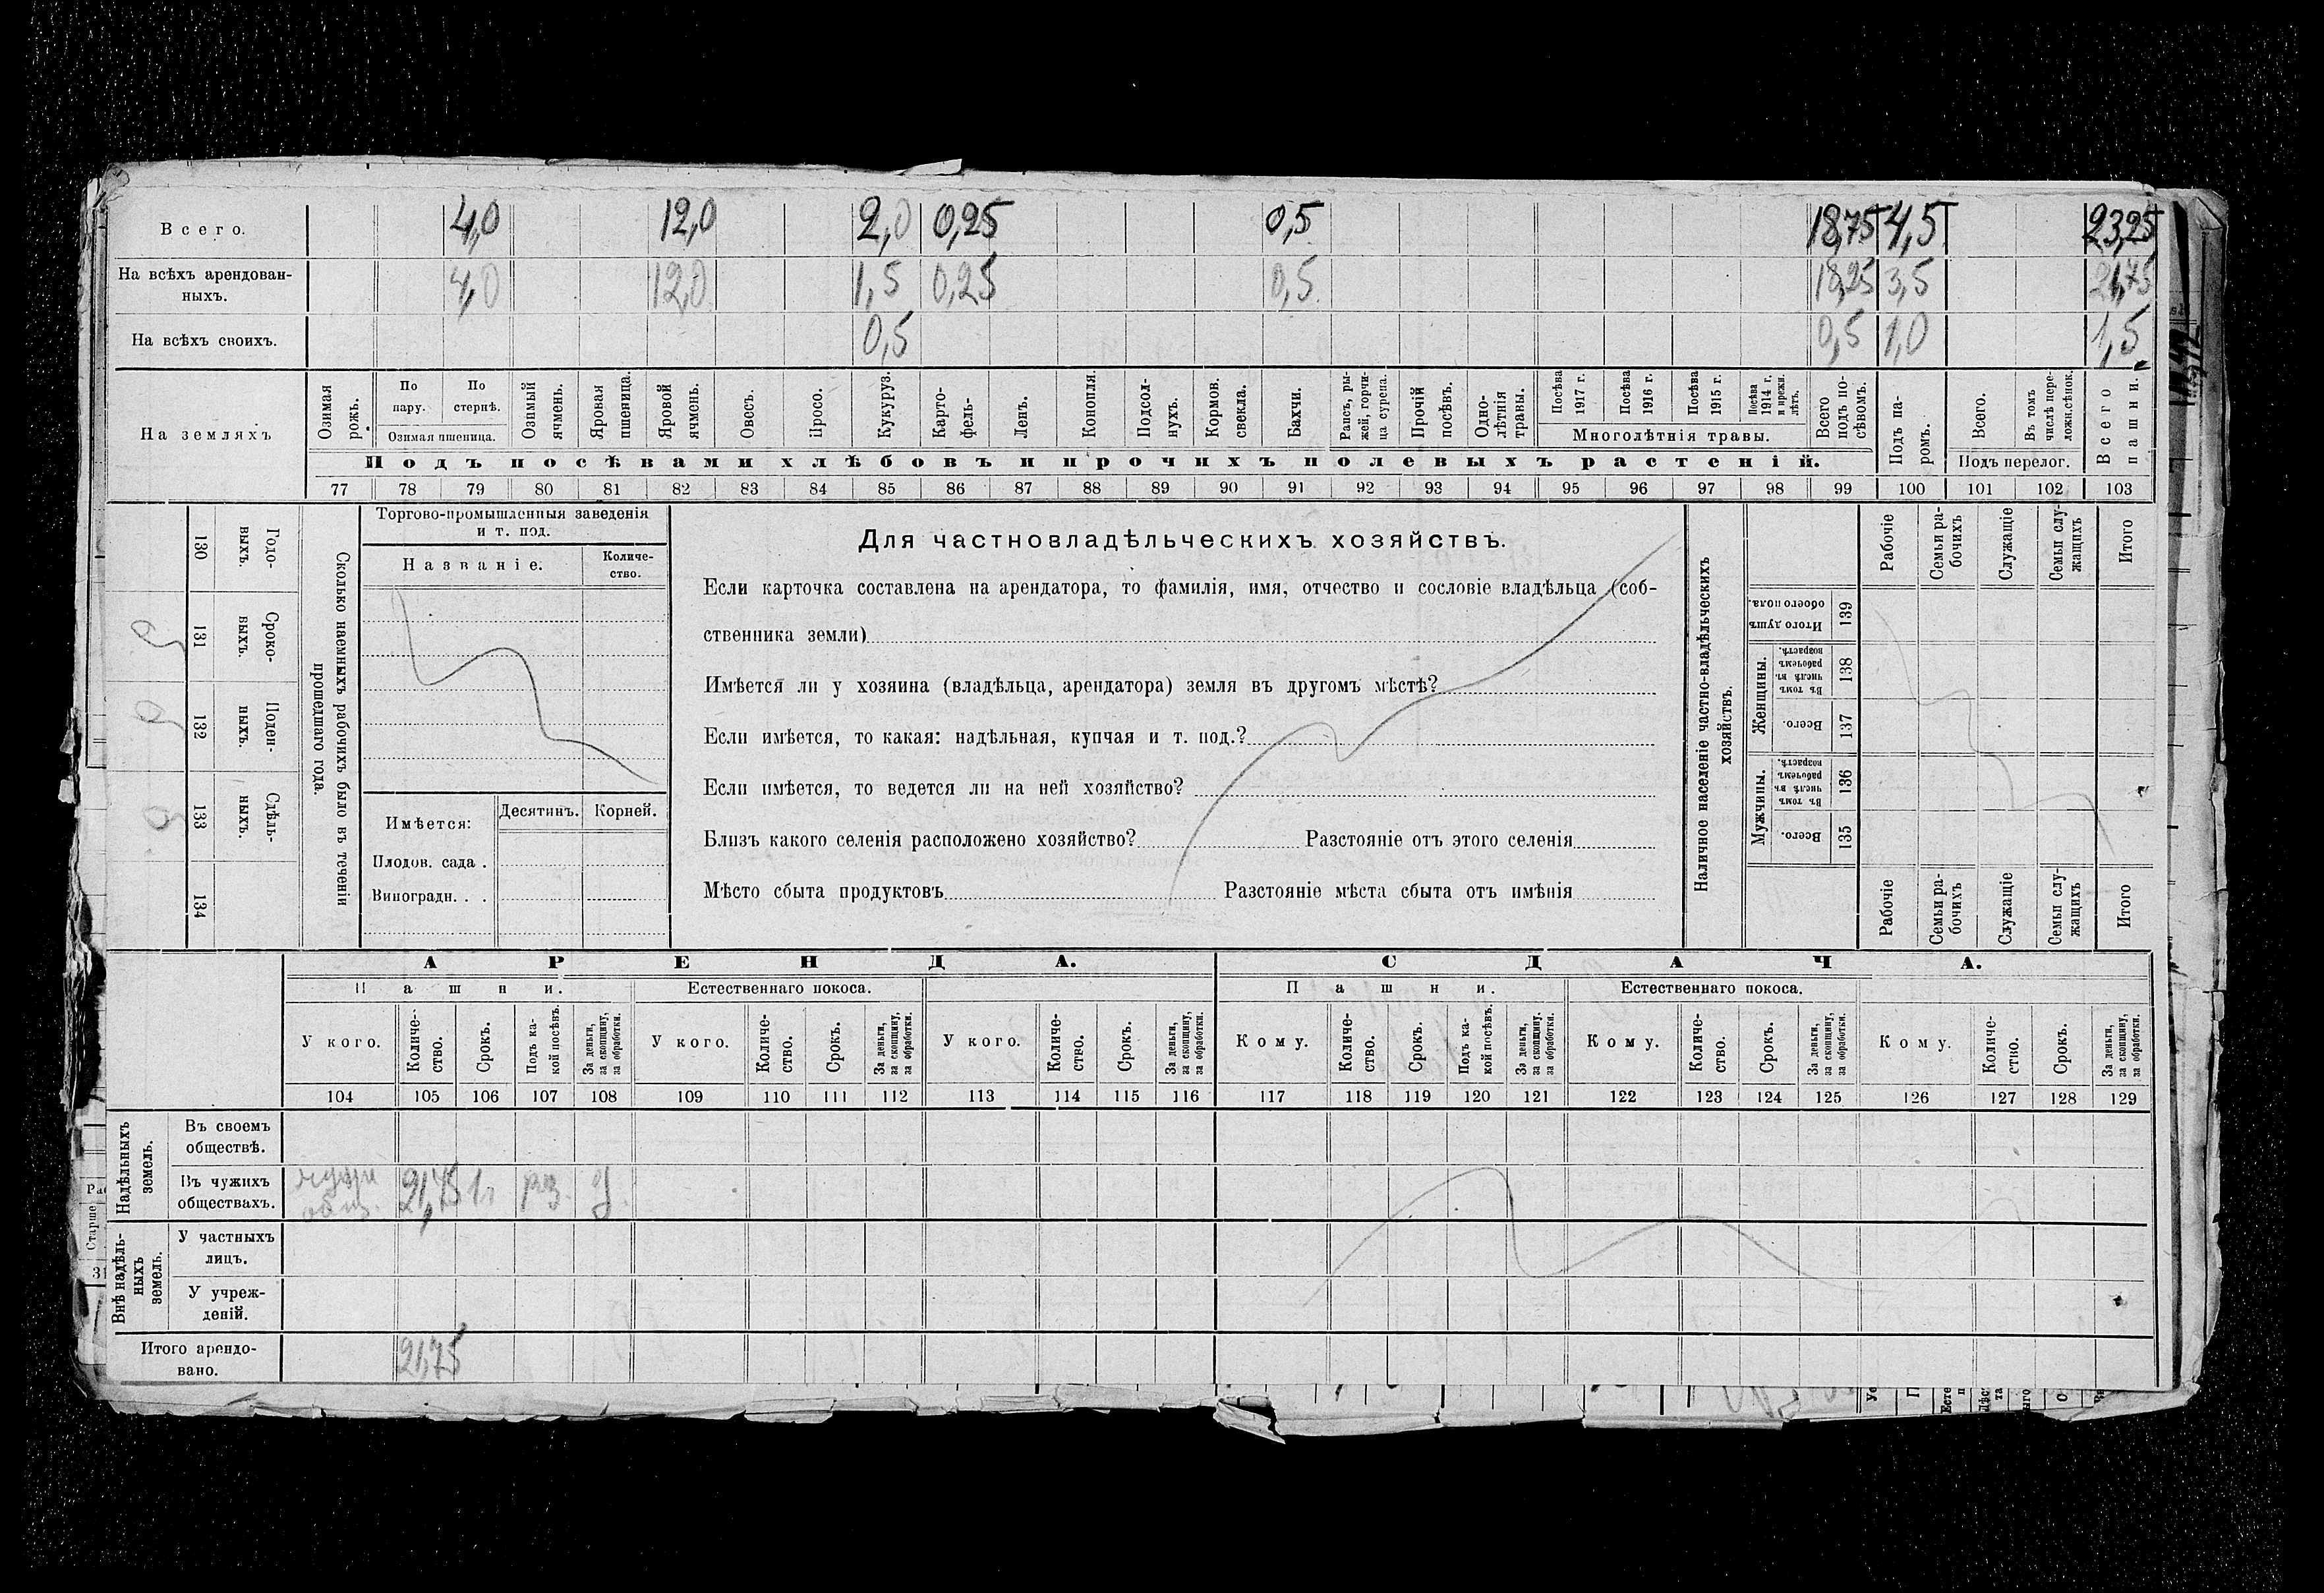 Всего. 4,0 12,0 2,0 0,25 0,5 18,75 4,5 23,25
На всѣхъ арендован-
ныхъ. 4,0 12,0 1,5 0,25 0,5 18,25 3,5 21,75
На всѣхъ своихъ. 0,5 0,5 1,0 1,5
На земляхъ
Озимая рожь.
По пару.
По стернѣ.
Озимая пшеница.
Озимый ячмень.
Яровая пшеница.
Яровой ячмень.
Овесъ.
Просо.
Кукуруз.
Карто-
фель-
Ленъ.
Конопля.
Подсол-
нухъ.
Кормов.
свекла.
Бахчи.
Рапсъ, ры-
жей, горчи-
ца сурепа.
Прочій
посѣвъ.
Одно-
лѣтнія
травы.
Посѣва
1917 г.
Посѣва
1916 г.
Посѣва
1915 г.
Посѣва
1914 г.
и прежн.
лѣтъ.
Многолѣтнія травы.
Всего
подъ по-
сѣвомъ.
Подъ па-
ромъ.
Всего.
Въ томъ
числѣ пере-
лож.сѣнок.
Подъ перелог.
Всего
пашни.
Подъ посѣвами хлѣбовъ и прочихъ полевыхъ растеній.
77 78 79 80 81 82 83 84 85 86 87 88 89 90 91 92 93 94 95 96 97 98 99 100 101 102 103
130 Годо-
ныхъ.
131 Сроко-
выхъ.
132 Поден-
ныхъ.
133 Сдѣль-
ныхъ.
134
Сколько наемныхъ рабочихъ было въ теченіи
прошедшаго года.
Торгово-промышленныя заведенія
и т. под.
Названіе.
Количе-
ство.
Имѣется: Десятинъ. Корней.
Плодов. сада .
Виноградн. . .
Для частновладѣльческихъ хозяйствъ.
Если карточка составлена на арендатора, то фамилія, имя, отчество и сословіе владѣльца (соб-
ственника земли)
Имѣется ли у хозяина (владѣльца, арендатора) земля въ другомъ мѣстѣ?
Если имѣется, то какая: надѣльная, купчая и т. под.?
Если имѣется, то ведется ли на ней хозяйство?
Близъ какого селенія расположено хозяйство? Разстояніе отъ этого селенія
Мѣсто сбыта продуктовъ Разстояніе мѣста сбыта отъ имѣнія
Наличное населеніе частно-владѣльческихъ
хозяйствъ.
Рабочіе
Семьи ра-
бочихъ
Служащіе
Семьи слу-
жащихъ
Итого
Итого душъ
обоего пола.
139
Женщины.
Въ томъ
числѣ въ
рабочемъ
возрастѣ.
138
Всего.
137
Мужчины.
Въ томъ
числѣ въ
рабочемъ
возрастѣ.
136
Всего.
135
Рабочіе
Семьи ра-
бочихъ
Служащіе
Семьи слу-
жащихъ
Итого
АРЕНДА. СДАЧА.
Пашни. Естественнаго покоса. Пашни. Естественнаго покоса.
У кого.
Количе-
ство.
Срокъ.
Подъ ка-
кой посѣвъ.
За деньги,
за скопщину,
за обработки.
У кого.
Количе-
ство.
Срокъ.
За деньги,
за скопщину,
за обработки.
У кого.
Количе-
ство.
Срокъ.
За деньги,
за скопщину,
за обработки.
Кому.
Количе-
ство.
Срокъ.
Подъ ка-
кой посѣвъ.
За деньги,
за скопщину.
за обработки.
Кому.
Количе-
ство.
Срокъ.
За деньги,
за скопщину,
за обработки.
Кому.
Количе-
ство.
Срокъ.
За деньги,
за скопщину,
за обработки.
104 105 106 107 108 109 110 111 112 113 114 115 116 117 118 119 120 121 122 123 124 125 126 127 128 129
Надѣльныхъ
земель.
Въ своемъ
обществѣ.
Въ чужихъ
обществахъ. общ. 21,75 1г рз. д.
Внѣ надѣль-
ныхъ
земель.
У частныхъ
лицъ.
У учреж-
деній.
Итого арендо-
вано. 21,75
Старше
31